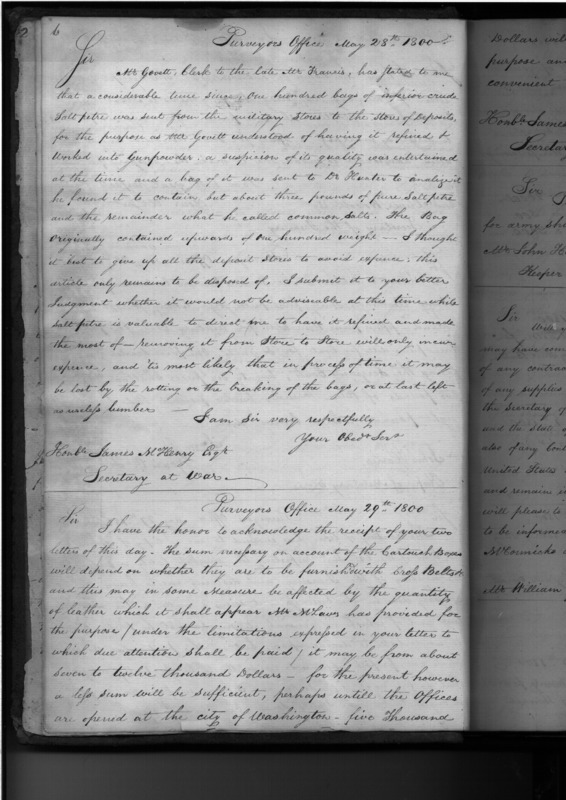 6
Purveyors Office May 28th 1800
Sir
Mr Govett, Clerk to the late Mr Francis, has stated to me
that a considerable time since, One hundred bags of inferior crude
Saltpetre was sent from the military Stores to the Store of Deposite,
for the purpose as Mr Govett understood of having it refined &
Worked into Gunpowder, a suspicion of its quality was entertained
at the time and a bag of it was sent to Dr Hunter to analize it
he found it to contain but about three pounds of pure Saltpetre
and the remainder what he called common Salts. The Bag
Originally contained upwards of One hundred weight — I thought
it best to give up all the deposit Stores to avoid expence; this
article only remains to be disposed of, I submit it to your better
Judgment whether it would not be adviseable at this time while
Saltpetre is valuable to direct me to have it refined and made
the most of — removing it from Store to Store will only incur
expence, and 'tis most likely that in process of time it may
be lost by the rotting or the breaking of the bags, or at last left
as useless lumber —
I am Sir very respectfully
Your Obedt Servt
Honble James McHenry Esqr
Secretary at War
Purveyors Office May 29th 1800
Sir
I have the honor to acknowledge the receipt of your two
letters of this day. The sum necessary on account of the Cartouch Boxes
will depend on whether they are to be furnish'd with Cross Belts &
and this may in some Measure be affected by the quantity
of leather which it shall appear Mr McLaws has provided for
the purpose / under the limitations expressed in your letter to
which due attention shall be paid / it may be from about
seven to twelve thousand Dollars — for the present however
a less sum will be sufficient, perhaps untill the Offices
are opened at the city of Washington — five Thousand
Dollars
purpose and
convenient
Honble James
Secretary
Sir
for army
Mr John
Hesper
Sir
may have
of any contra
of any supplies
the Secretary of
and the State
also of any
United States
and remains
will please to
to be informed
McCormicks
Mr William